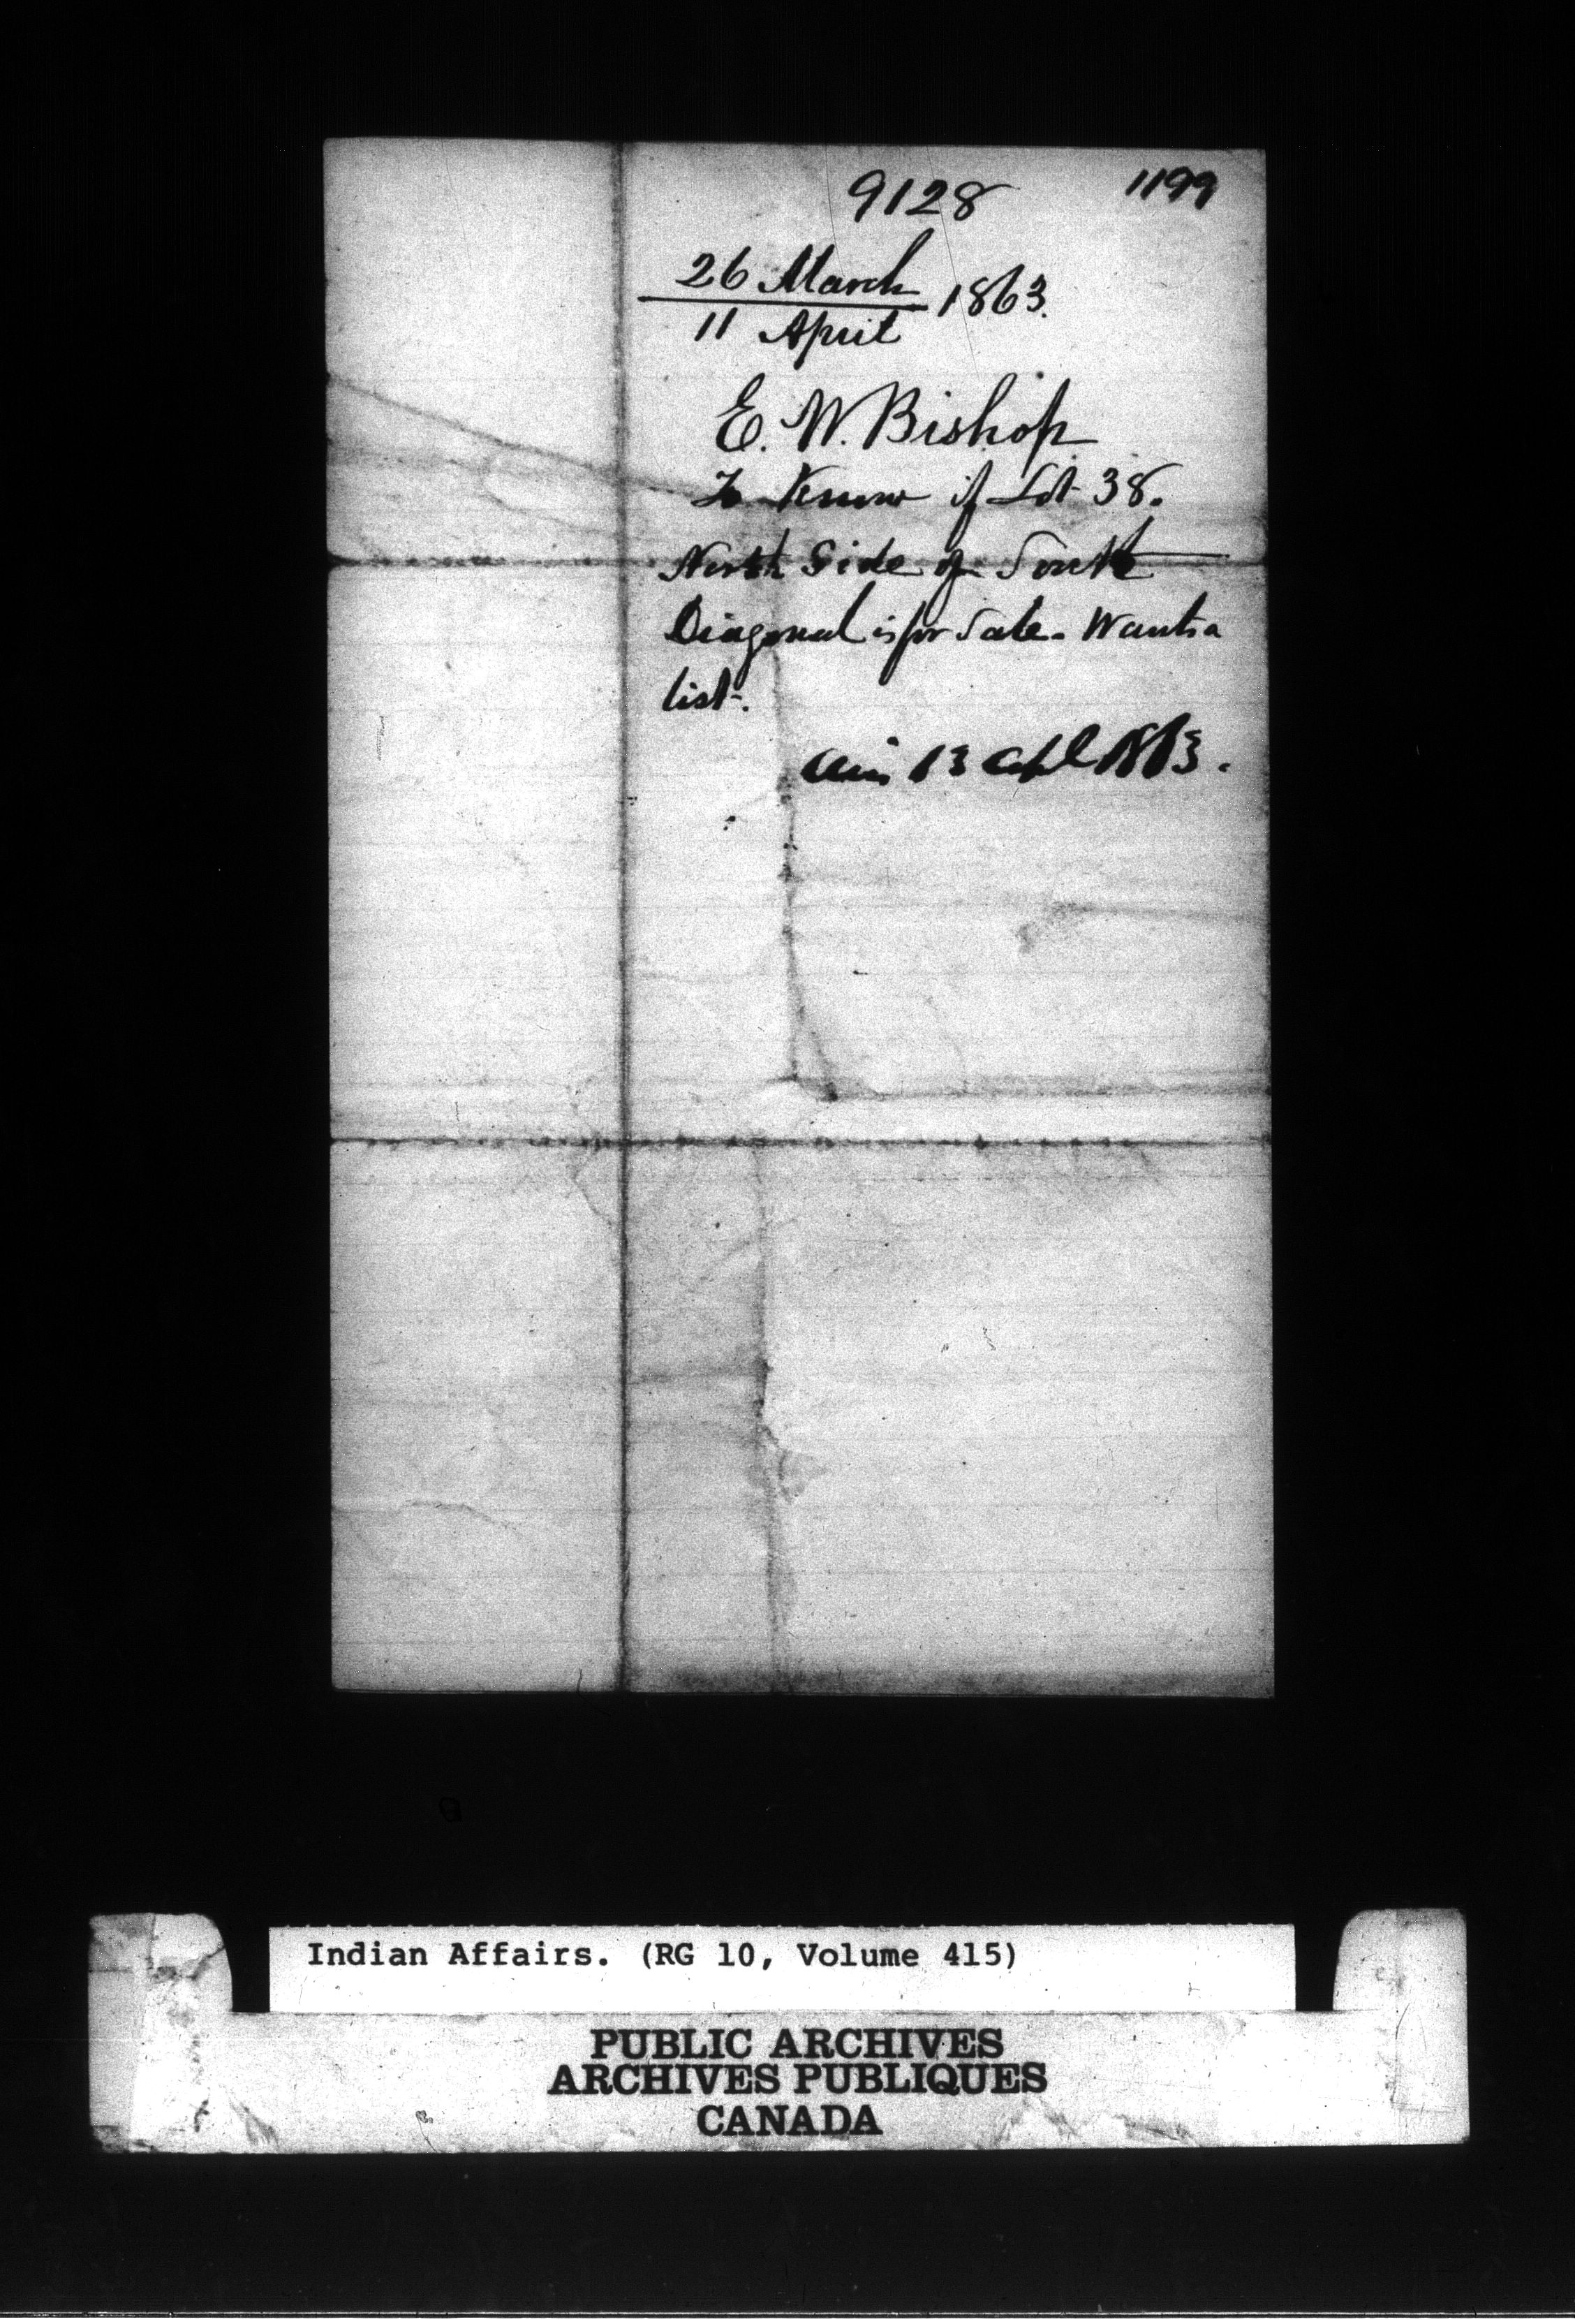 9128 1199
26 March 1863.
11 April
E. W. Bishop
To Know if Lot 38.
North Side of South
Diagonal is for Sale. Wants a
list.
Ans 13 Apl 1863.
Indian Affairs. (RG 10, Volume 415)
PUBLIC ARCHIVES
ARCHIVES PUBLIQUES
CANADA